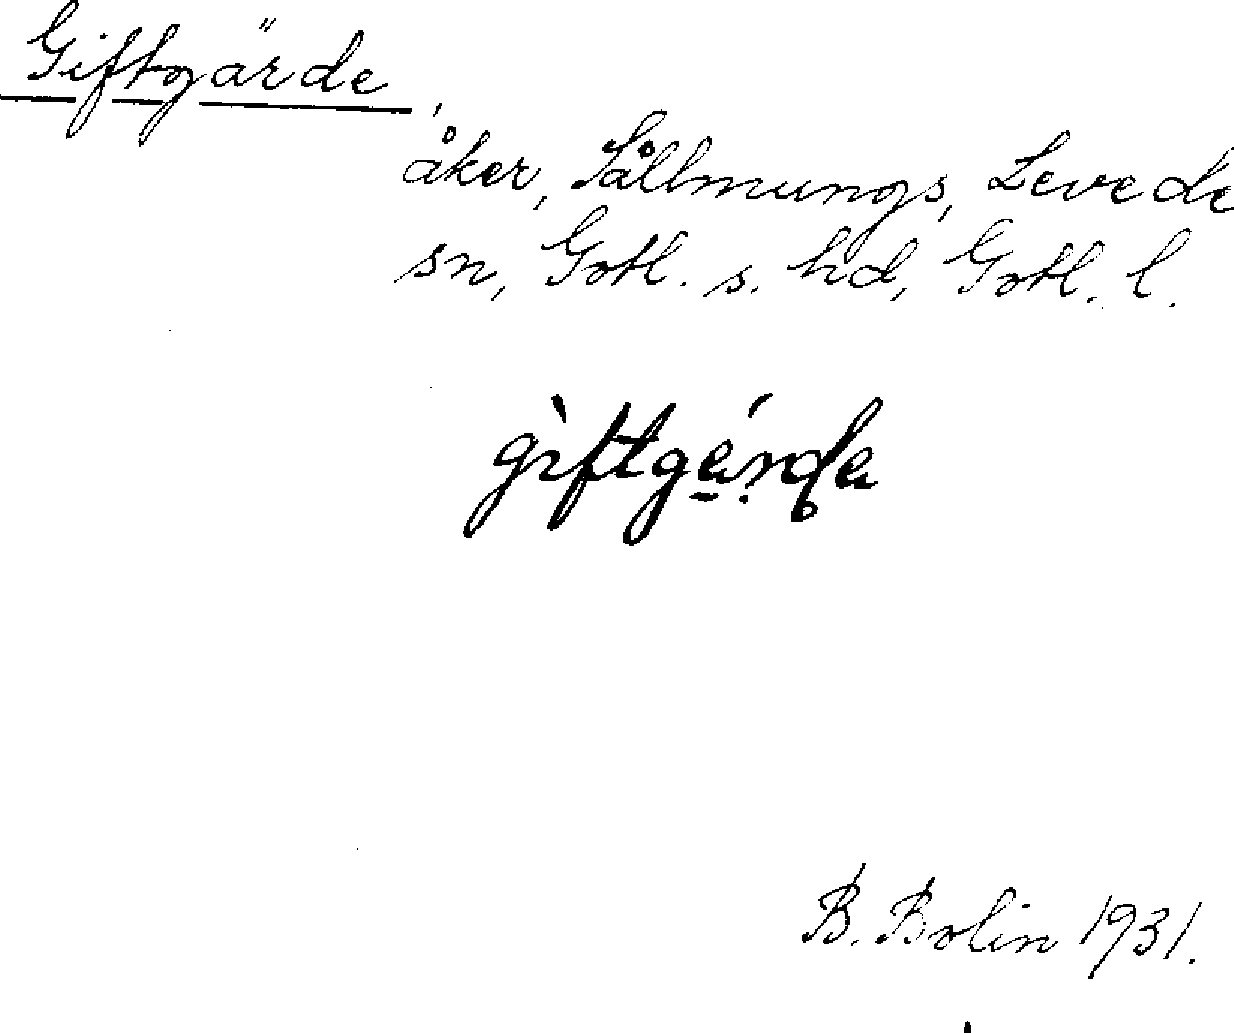 Giftgärde,
åker, Sållmungs, Levede
sn, Gotl. s. hd, Gotl. l.
giftgärda
B. Bolin 1931.